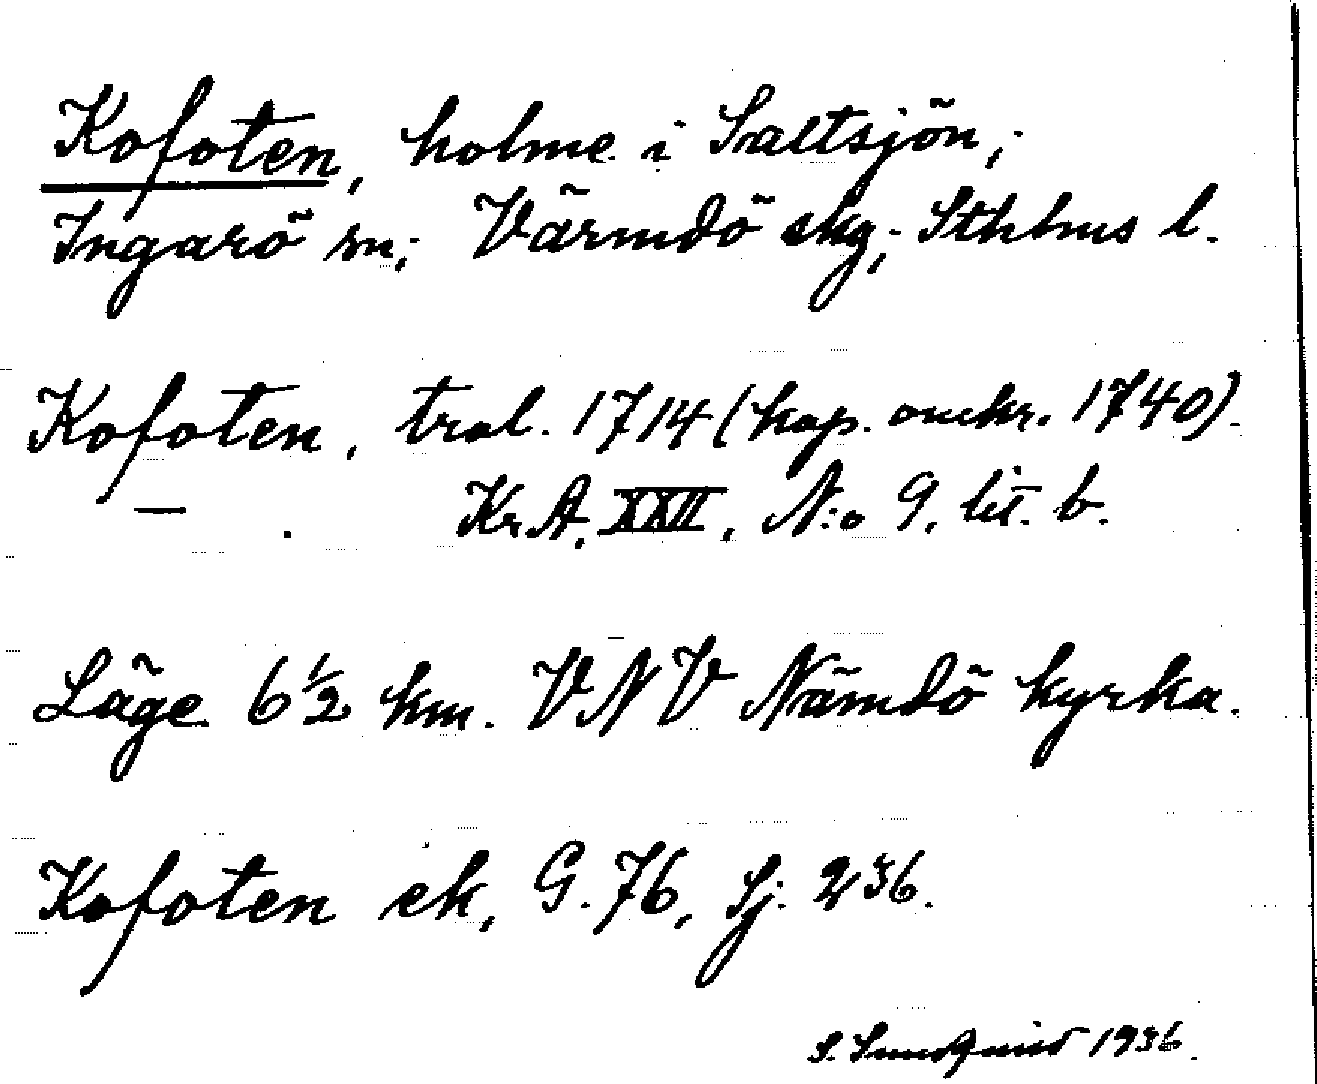 Kofoten, holme i Saltsjön,
Ingarö sn; Värmdö skg; Sthlms l.
Kofoten, tral. 1714 (kop. omkr. 1740).
— . Kr. A. XXII, N:o 9, lit. b.
Läge 6½ km. VNV Nämdö kyrka.
Kofoten ek, G. 76, Sj. 236.
S. Sundquist 1936.